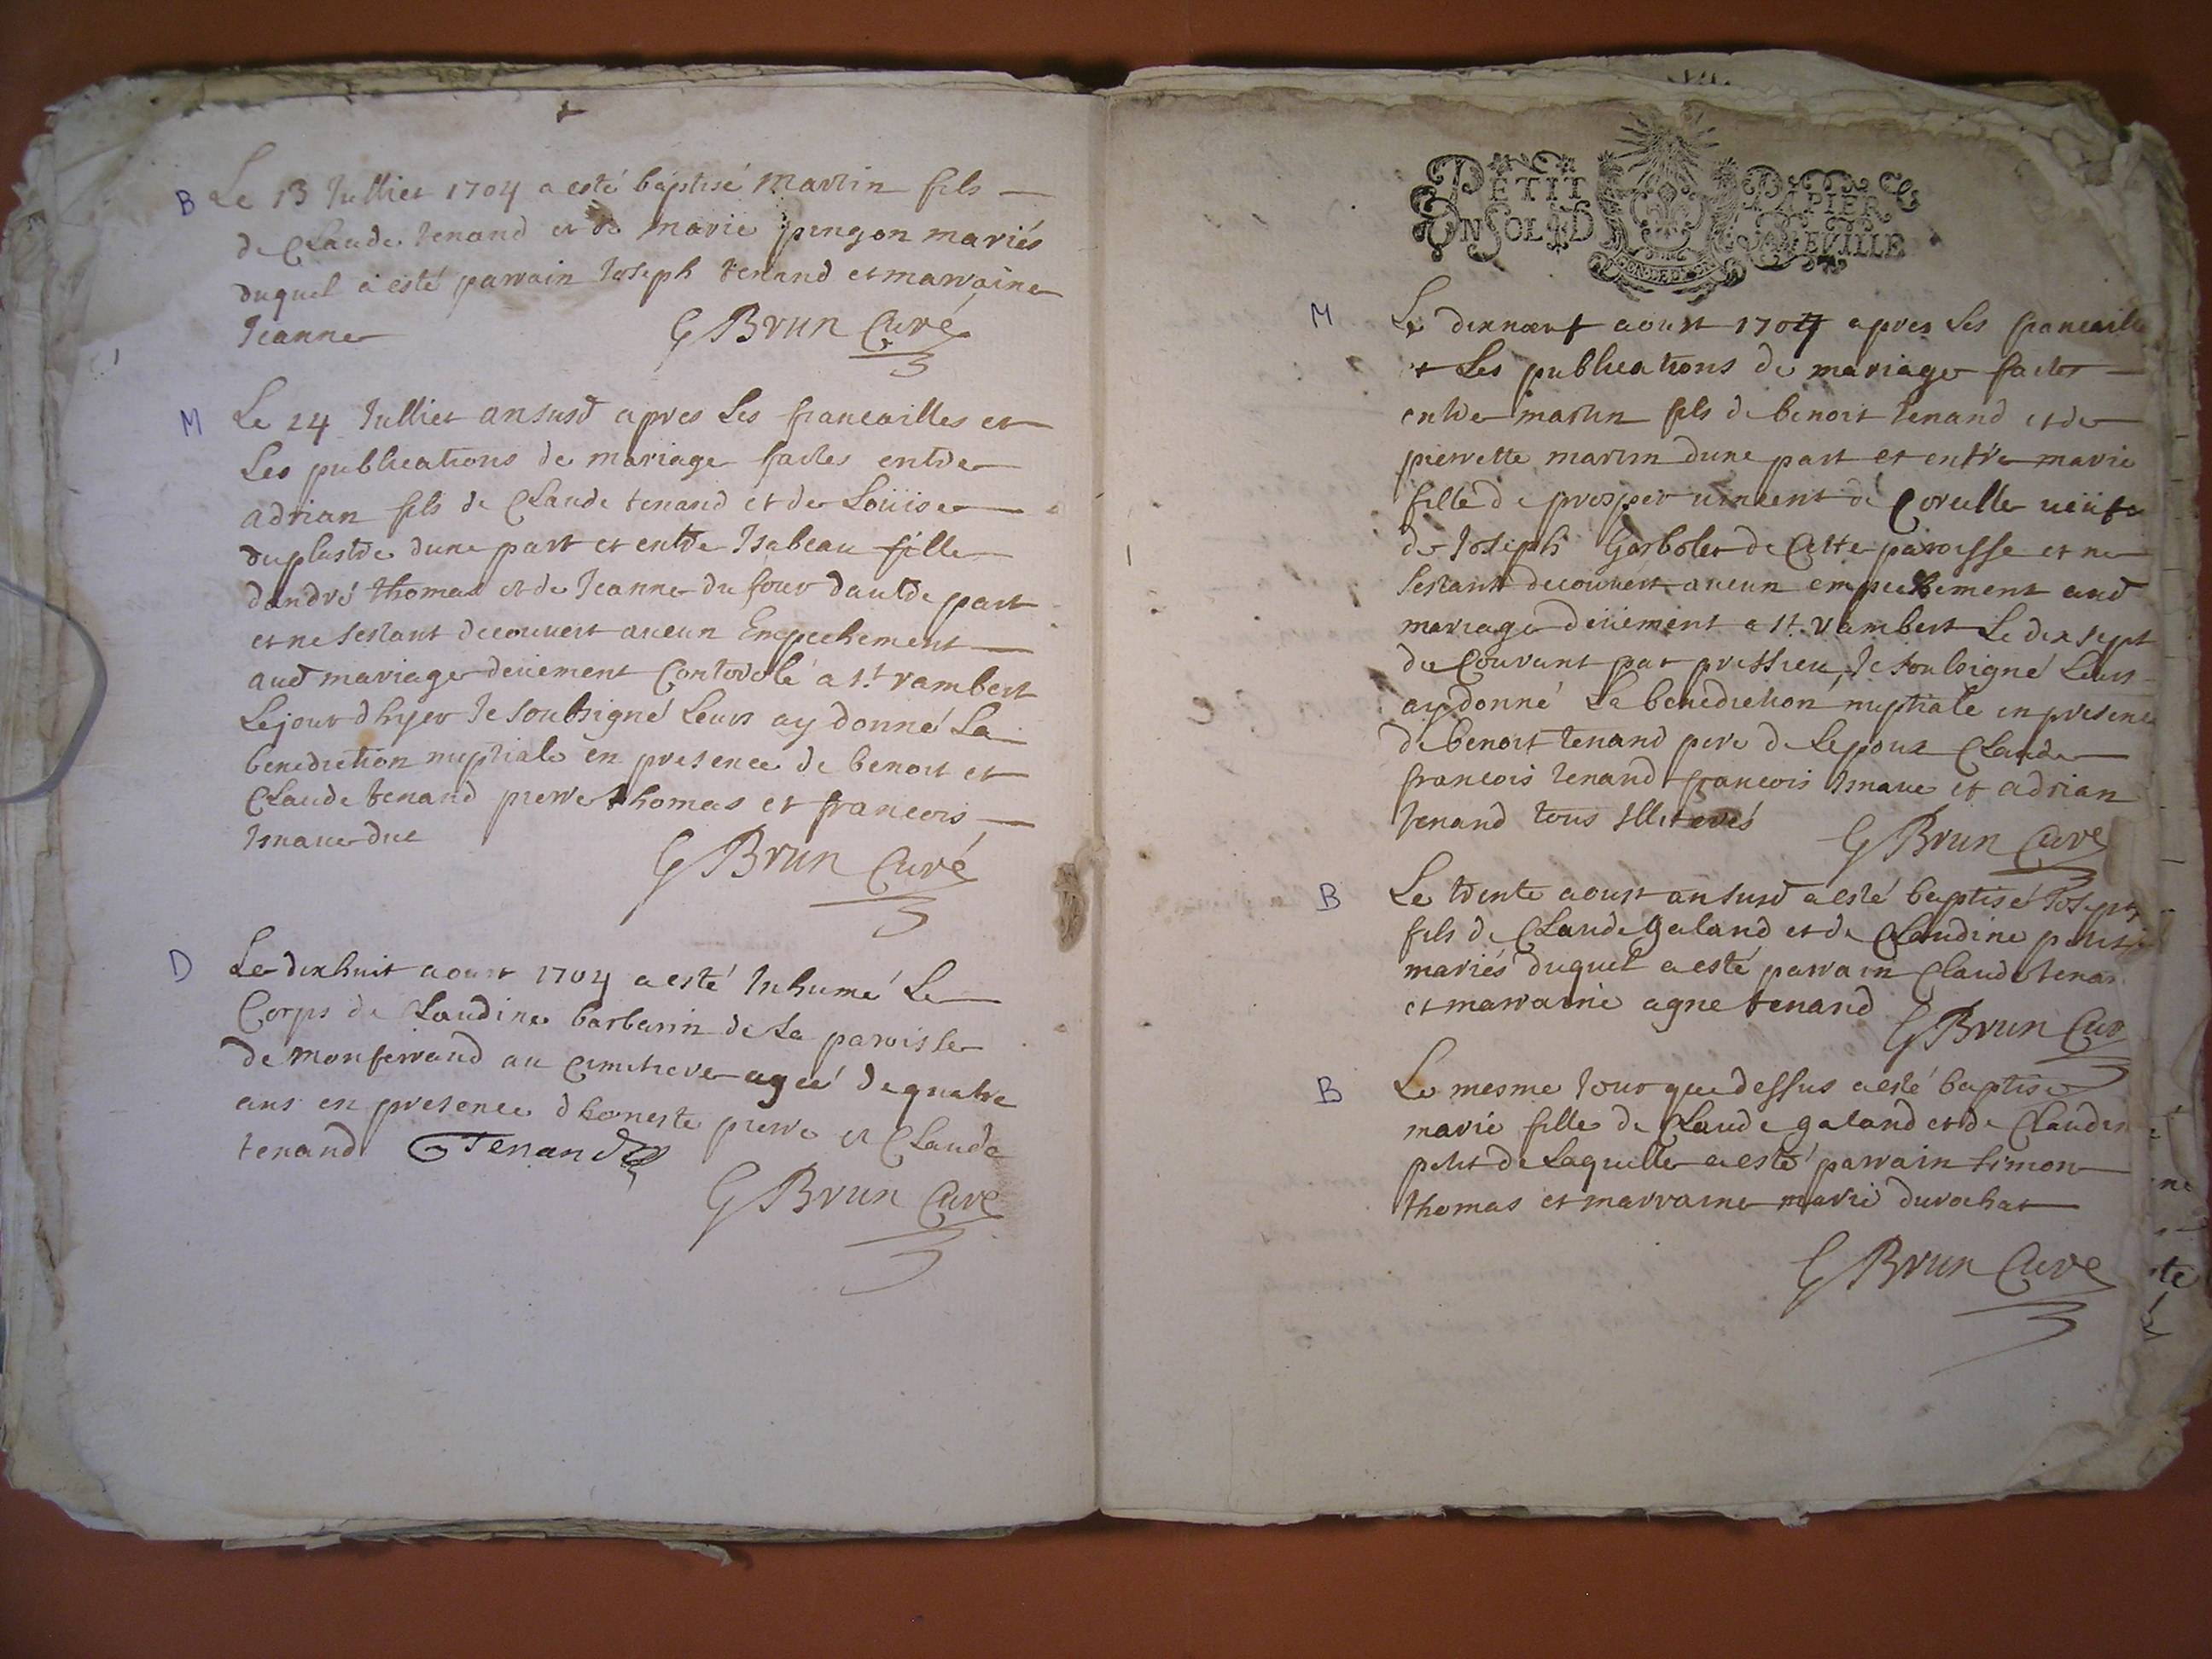 B Le 13 Julliet 1704 a esté baptisé Martin fils
de Claude tenand et de marie pingon mariés
duquel a esté parrain Joseph tenand et marraine
Jeanne G Brun Curé
M Le 24 Julliet an susd apres Les fiancailles et
Les publications de mariage faictes entre
adrian fils de Claude tenand et de Loüise
duplastre dune part et entre Isabeau fille
dandré thomas et de Jeanne dufour daultre part
et ne sestant decouvert aucun Empechement
aud mariage deüement Controolé a St rambert
Le jour dhyer Je soubsigné Leurs ay donné La
benediction nuptiale en presence de benoit et
Claude tenand pierre thomas et francois
G Brun Curé
D Le dixhuit aoust 1704 a esté Inhumé Le
Corps de Claudine barbarin de La paroisse
de monferrand au cimetiere ageé de quatre
ans en presence dhoneste pierre et Claude
tenand C Tenand
G Brun Curé
PETIT PAPIER
UN SOL 4 D LA FEUILLE
GEN DE DIION
M Le dixneuf aoust 1704 apres Les fiancaille
et Les publications de mariage faictes
entre martin fils de benoit tenand et de
pierrette martin dune part et entre marie
fille de prosper vincent de Corcelle veüfve
de Joseph Garbolet de Cette paroisse et ne
sestant decouvert aucun empechement aud
mariage deüement a St. rambert Le dix sept
du Courant par pressieu, Je soubsigné Leurs
ay donné La benediction nuptiale en presence
de benoit tenand pere de Lepoux Claude
francois tenand francois et adrian
tenand tous Illiterés G Brun Curé
B Le trente aoust an susd a esté baptisé Joseph
fils de Claude galand et de Claudine petit
mariés duquel a esté parrain Claude tenan
et marraine agne tenand G Brun Cur
B Le mesme Jour que dessus a esté baptisé
marie fille de Claude galand et de Claudin
petit de Laquelle a esté parrain simon
thomas et marraine marie durochat
G Brun Curé